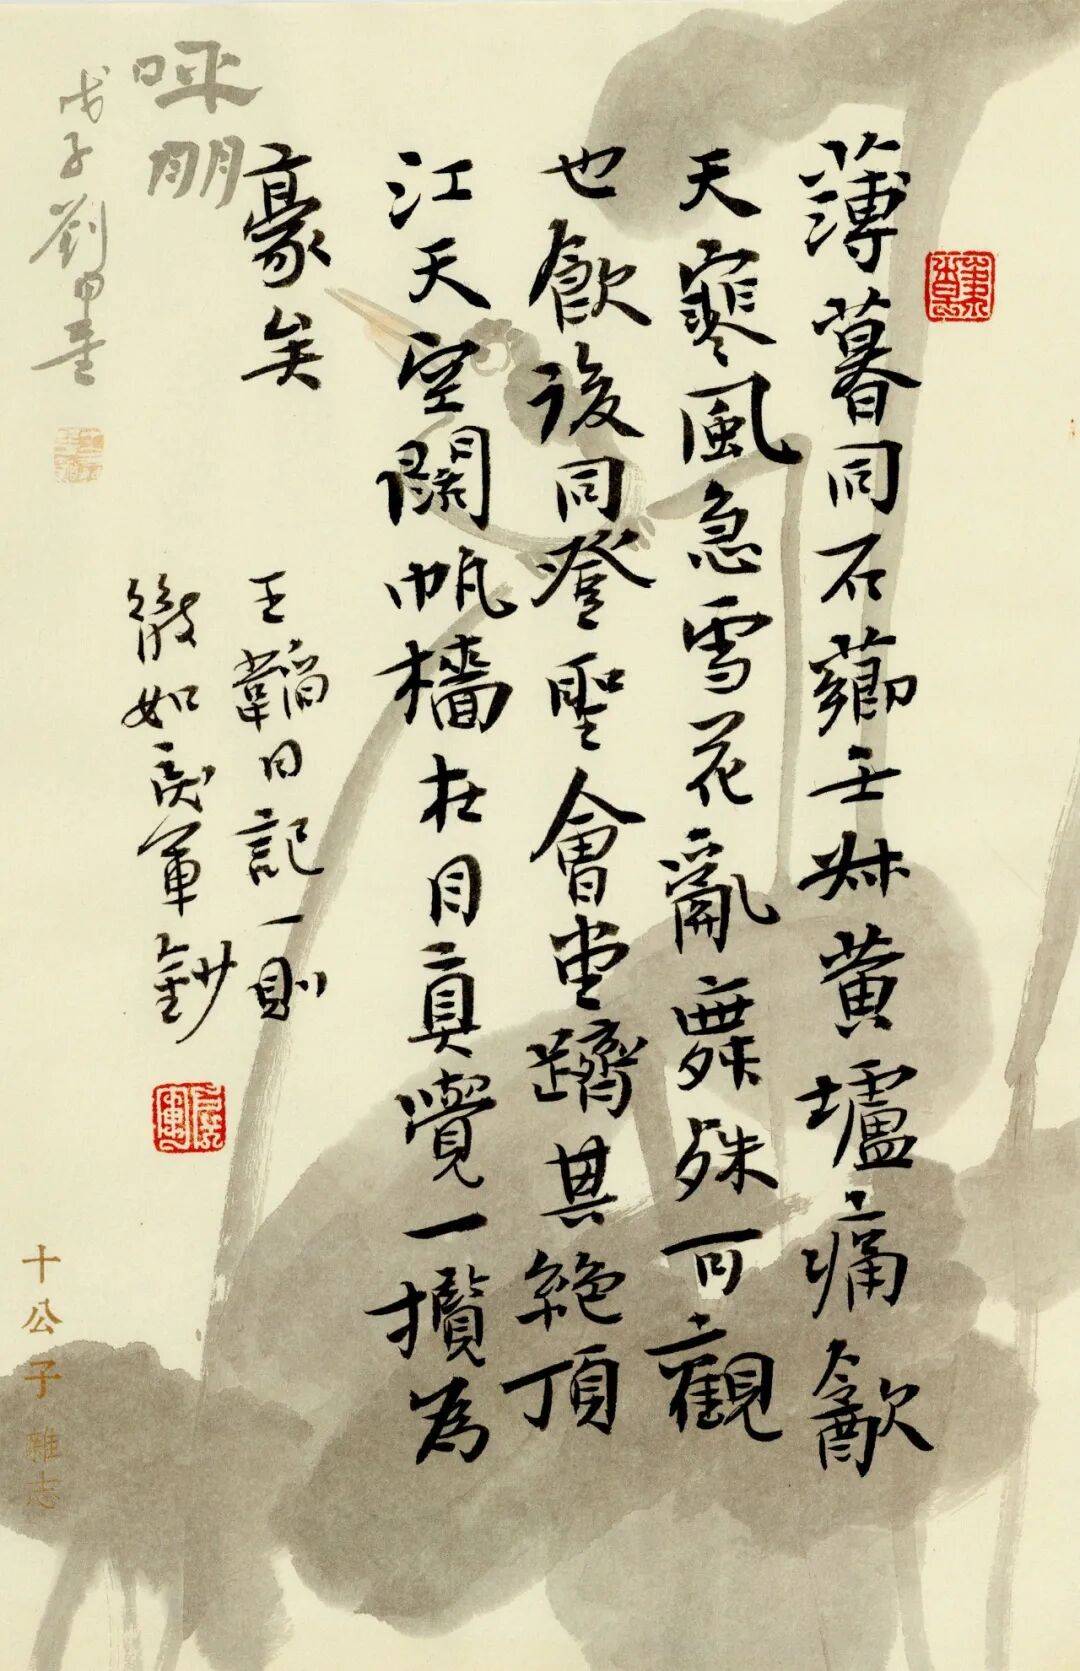 薄暮同石薌壬叔黄壚痛飲
天寒風急雪花亂舞殊可觀
也飲後同登聖會堂躋其絶頂
江天空闊帆檣在目真覺一攬為
豪矣
王韜日記一則
軍鈔
咪朋
戊子劉
十公子雜志